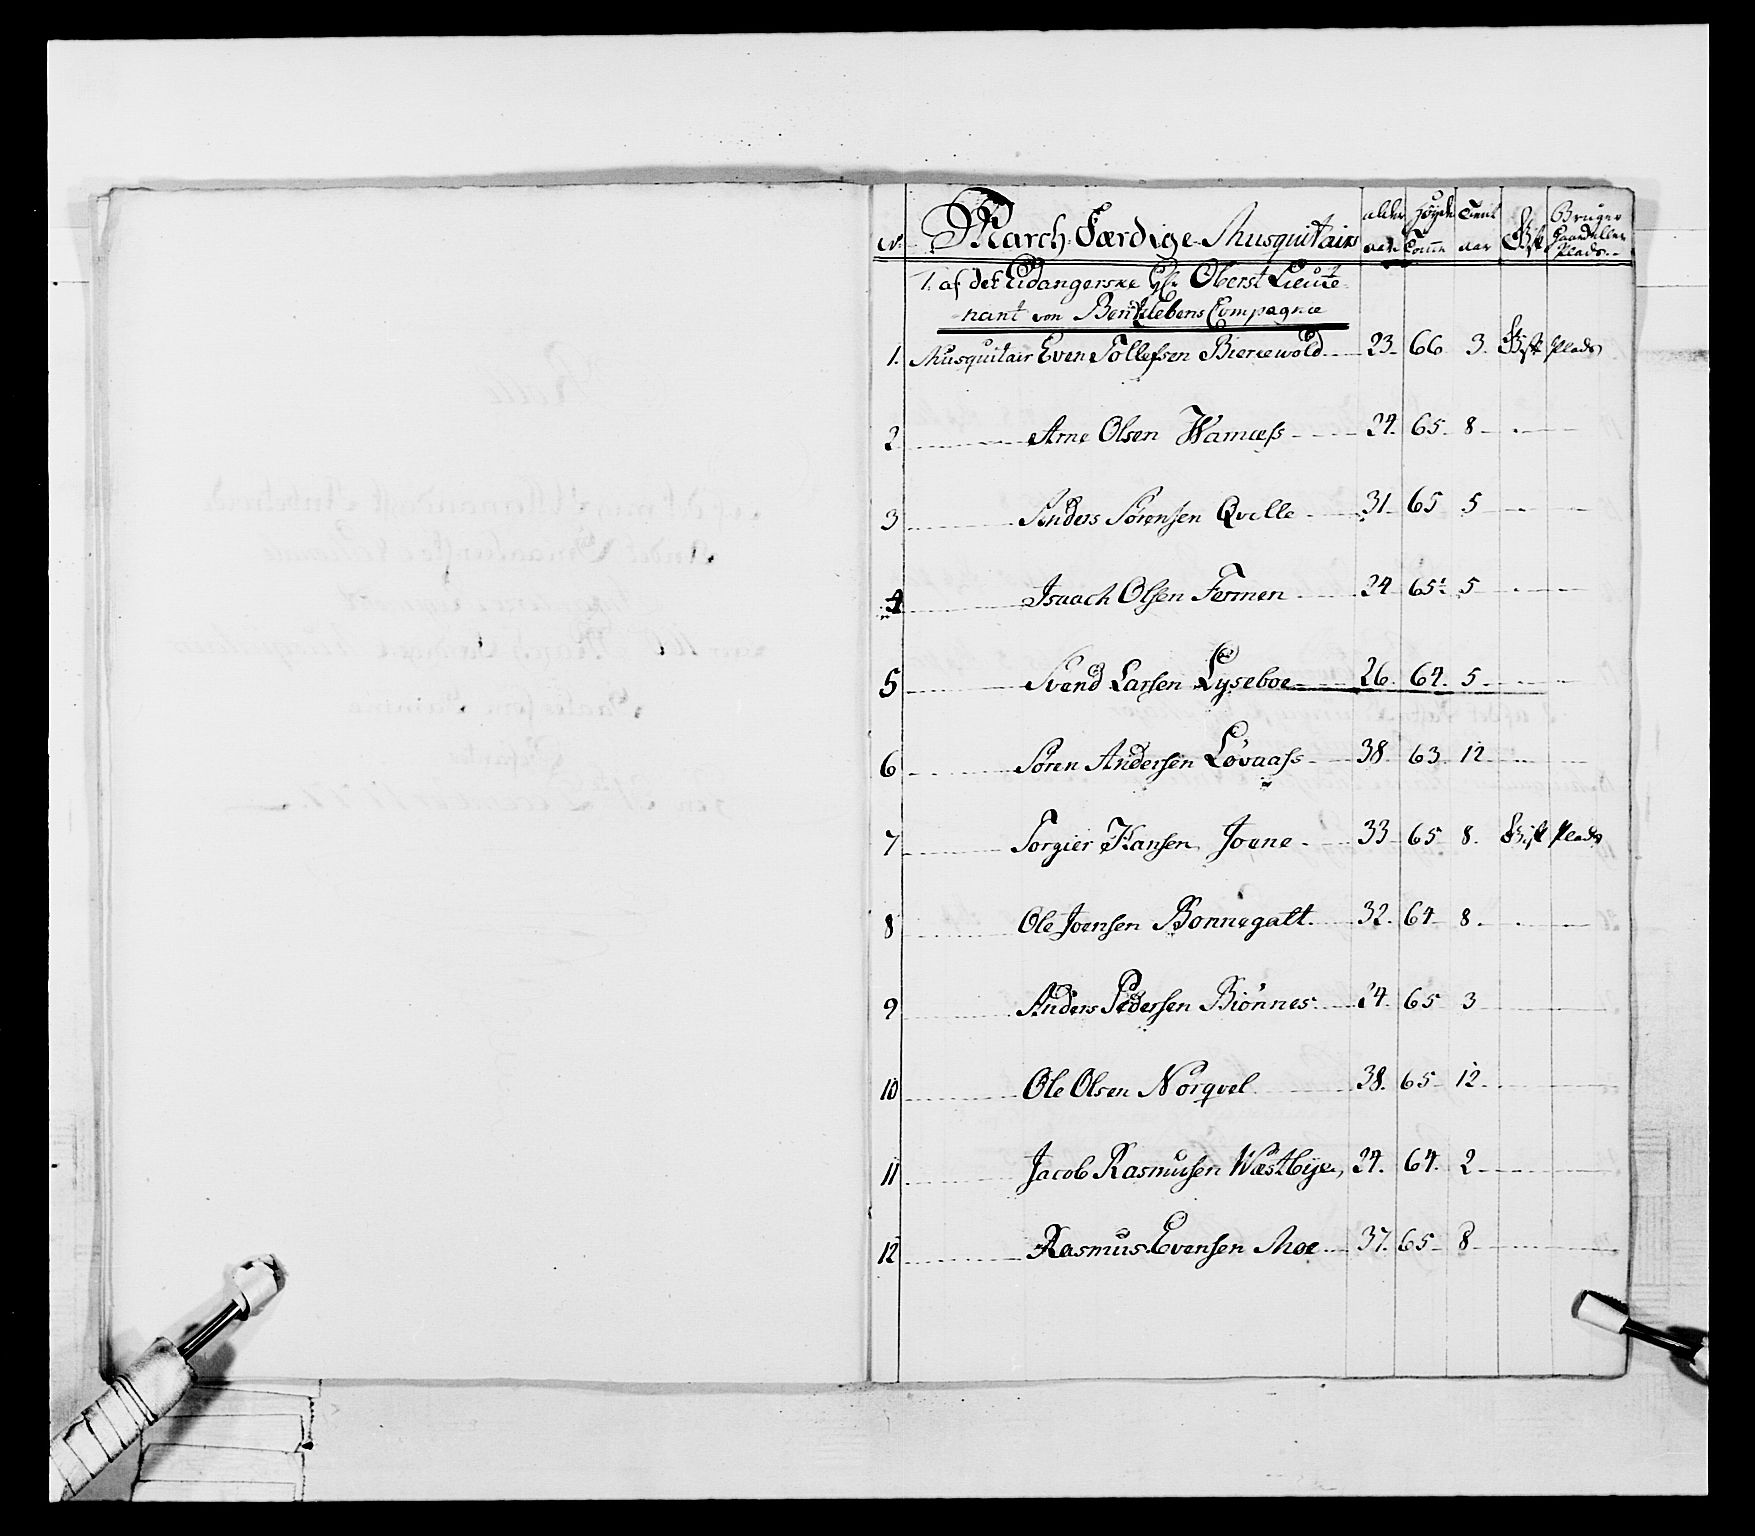 N. March Færdige Musquitairs alder aar Höyde Tomme Tient aar Gift Bruger Gaard eller Plads
1. af det Eidangerske Hr. Oberst Lieute
nant von Bentzlebens Compagnie
1. Musquitair Even Tollefsen Biercewold 23. 66 3. Gift Plads
2 Arne Olsen 24. 65. 8
3 Anders Sörensen Qvelle 31 65 5
4 Isaach Olsen Fermen 24 65½ 5
5 Svend Larsen Lyseboe 26. 64. 5
6 Sören Andersen Lövaass 38. 63. 12
7 Torgier Hansen Joene 33 65 8. Gift Plads
8 Ole Joensen Bonnegalt 32. 64 8
9 Anders Pedersen Biönnes 24 65 3
10 Ole Olsen Nörqvel 38. 65 12
11 Jacob Rasmusen Wæstbye, 24. 64. 2
12 Rasmus Evensen Moe 37. 65 8